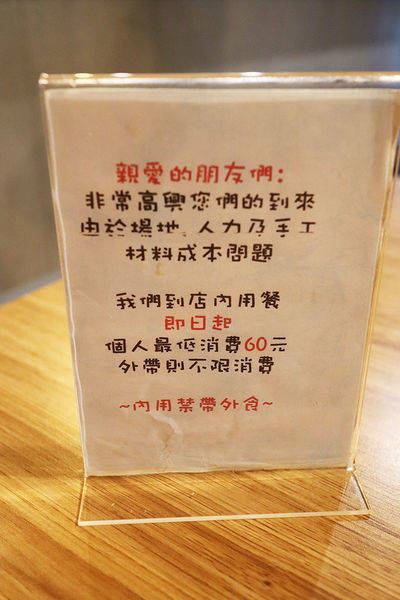 親愛的朋友們：
非常高興您們的到來
由於場地、人力及手工
材料成本問題
我們到店內用餐
即日起
個人最低消費60元
外帶則不限消費
~內用禁帶外食~